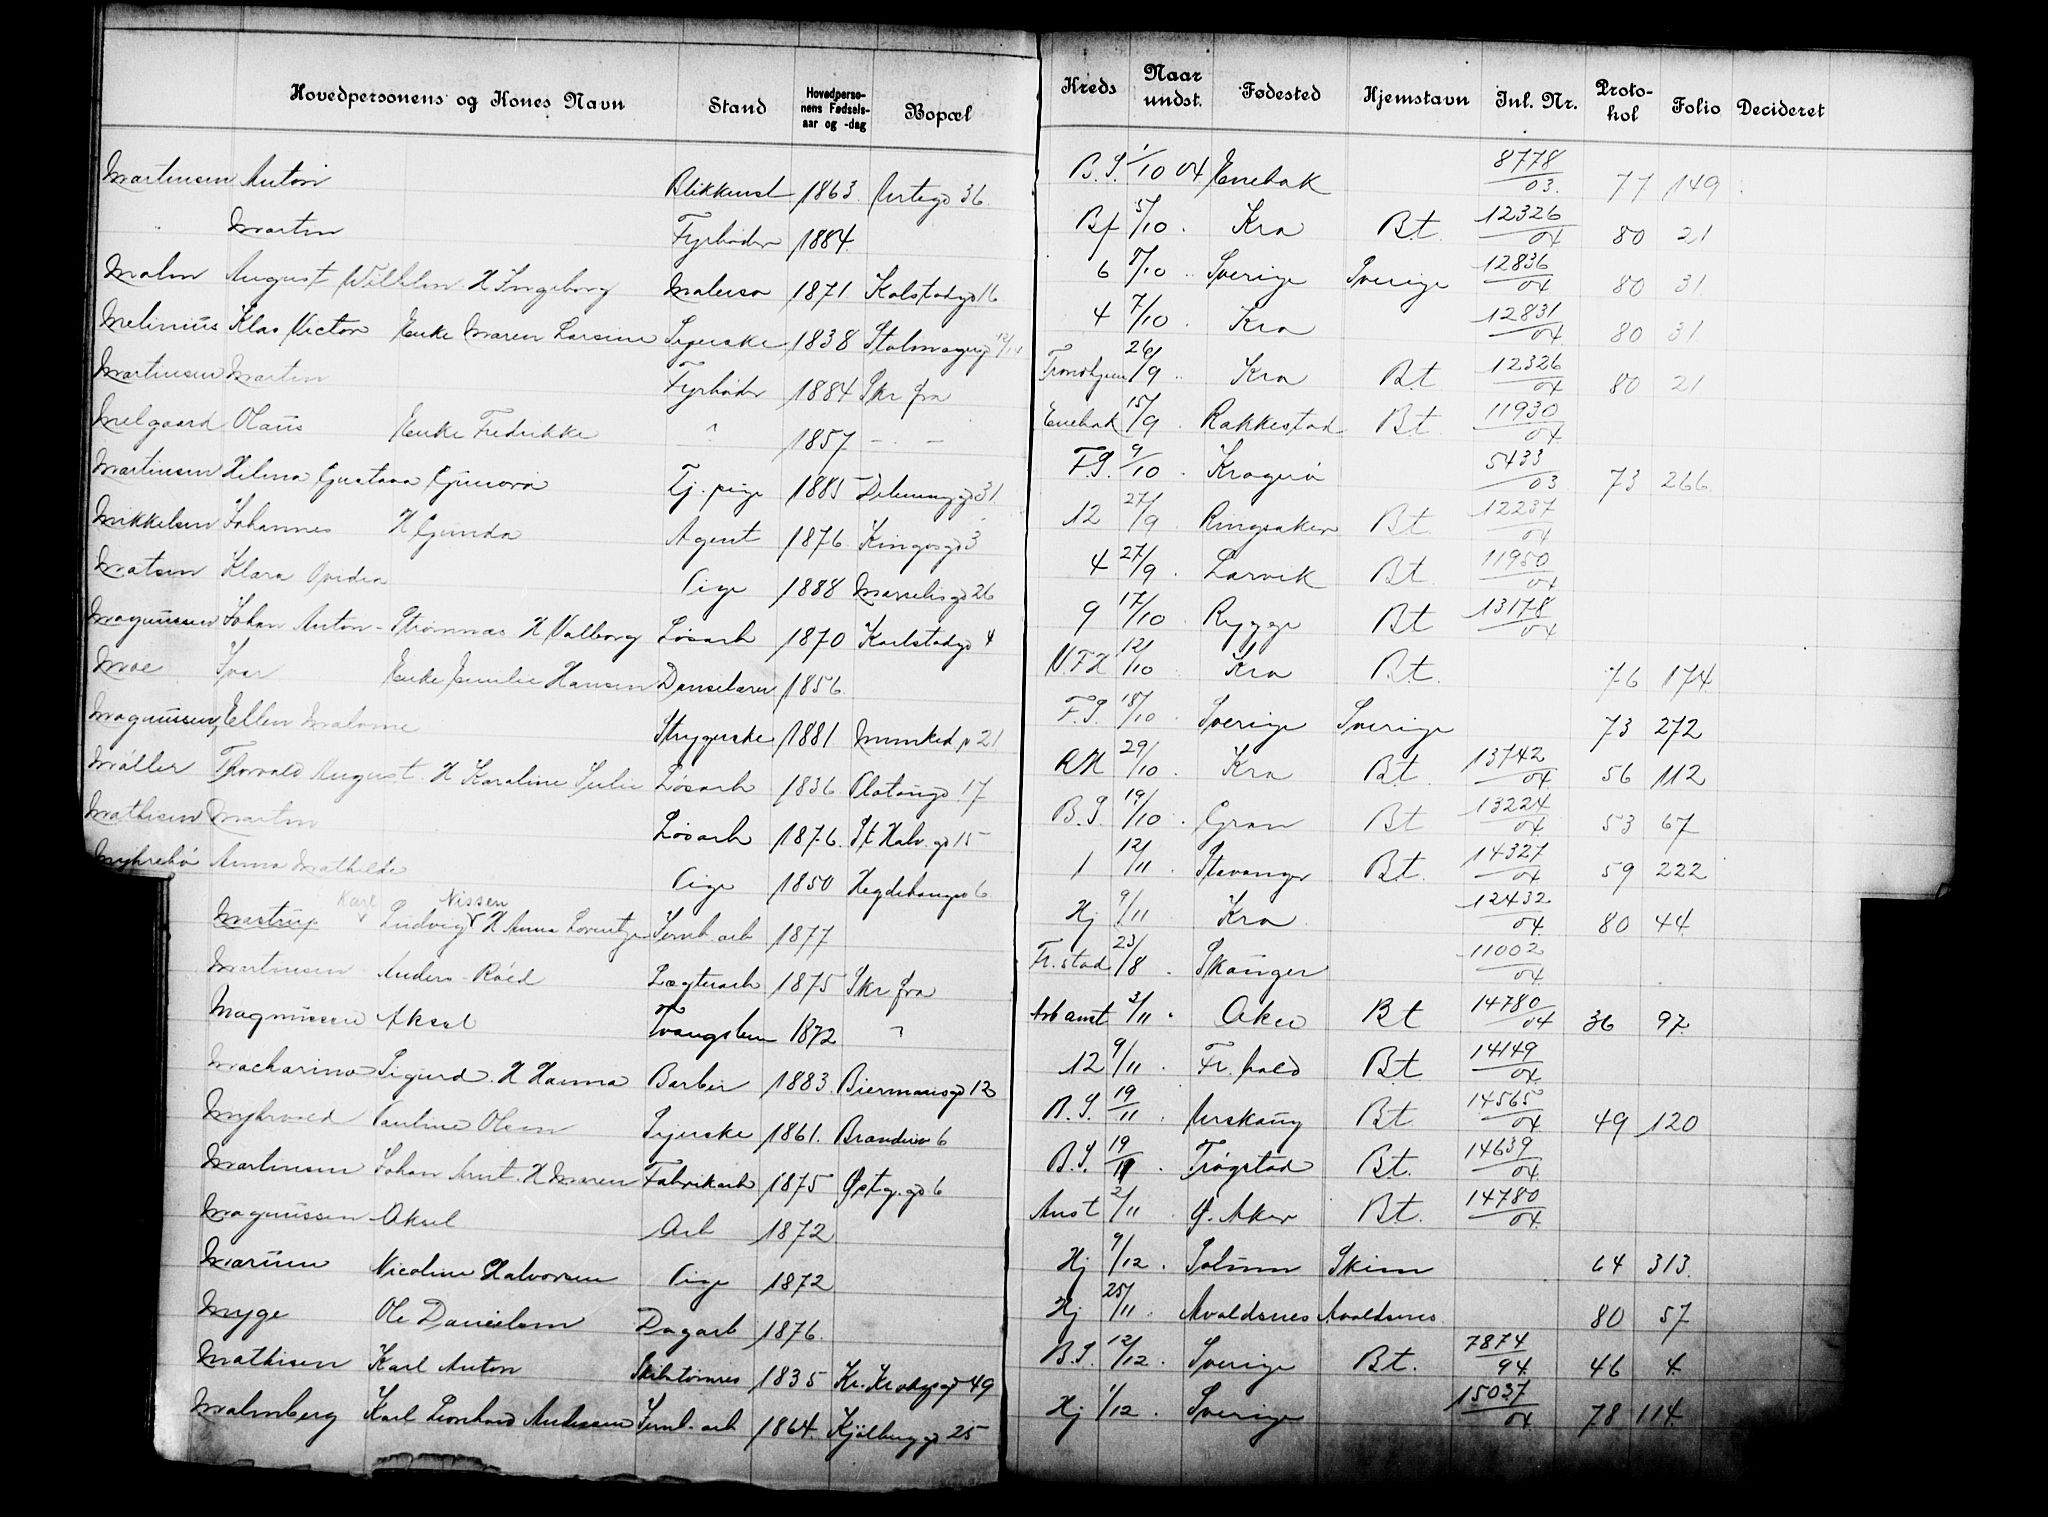 Hovedpersonens og Kones Navn Stand Hovedpersonens Fødselsaar og -dag Bopæl Kreds Naar undst. Fødested Hjemstavn Inl. Nr. Protokol Folio Decideret
Martinsen Anton Blikkensl 1863. 36 B.S. 1/10 04 Enebak 8778/03. 77 149
Martin Fyrbøder 1884. Bf 5/10. Kra Bt. 12326/04 80 21
Malm August Wilhelm H Ingeborg Malersv 1871 Kolstadgd 16 6 8/10 Sverige Sverige 12836/04 80 31
Melinius Klas Victor Enke Maren Larsine Syerske 1838 Stolmagergd 4 7/10. Kra 12831/04 80 31
Martinsen Martin Fyrbøder 1884 Skr fra Trondhjem 26/9 Kra Bt 12326/04 80 21
Melgaard Olaus Enke Fredrikke " 1857 - - Enebak 15/9 Rakkestad Bt. 11930/04
Martinsen Helma Gustava Gunora Tj. pige 1885 31. F.S. 9/10. Kragerø 5433/03 73 266
Mikkelsen Johannes H Gunda Agent 1876 Kingosgd 3 12 27/9. Ringsaker Bt. 12237/04
Matsen Klara Ovidia Pige 1888 26 4 27/9. Larvik Bt 11950/04
Magnussen Johan Anton - Strømnes H Valborg Løsarb 1870 Karlstadgd 4 9 17/10. Rygge Bt 13178/04
Moe Ivar Enke Emilie Hansen Danselærer 1856 V.F.H 12/10 Kra Bt. 76 174
Magnussen, Ellen Malvine Strygerske 1881 Munked v 21 F.S. 18/10. Sverige Sverige 73 272
Møller Thorvald August. H Karoline Julie Løsarb 1836 Platougd 17 RH 29/10. Kra Bt 13742/04 56 112
Mathisen Martin Løsarb 1876. St Halv. gd 15 B.S. 19/10. Gran Bt 13224/04. 53 67
Myhrebø Anna Mathilde Pige 1850 Hegdehaugsv 6 1 12/11. Stavanger Bt. 14327/04 59 222
Karl Nissen
Mastrup Ludvig H Anna Lorentze Jernb. arb 1877 Hj 9/11. Kra 12432/04. 80 44.
Martinsen Anders Røed Lægterarb 1875 Skr fra Fr.stad 23/8. Skauger 11002/04.
Magnussen Aksel Tvangslem 1872 " Arb anst 3/11. Aker Bt 14780/04 36 97.
Macharino Sigurd. H Hanna Barber 1883. Biermansgd 12 12 9/11. Fr. hald Bt 14149/04.
Myhrvold Pauline Olsen Syerske 1861. 6 B.S. 19/11. Aurskaug Bt. 14565/04 49 120
Martinsen Johan Ant. H Maren Fabrikarb 1875 6 B.S. 19/11. Trøgstad Bt. 14639/04.
Magnussen Aksel Arb 1872 Anst 2/11. Ø. Aker Bt. 14780/04.
Marum Nicoline Halvorsen Pige 1872 Hj 9/12. Solum Skien 64 313.
Myge Ole Danielsen Dagarb 1876. Hj 25/11. Avaldsnes Avaldsnes. 80 57
Mathisen Karl Anton Skibstømrer 1835 Kr. Kroghsgd 49 B.S. 12/12. Sverige Bt. 7874/94. 46 4.
Malmberg Karl Leonhard Andersen Jernb. arb 1864. Kjølberggd 25 Hj 1/12. Sverige 15037/04. 78 114.